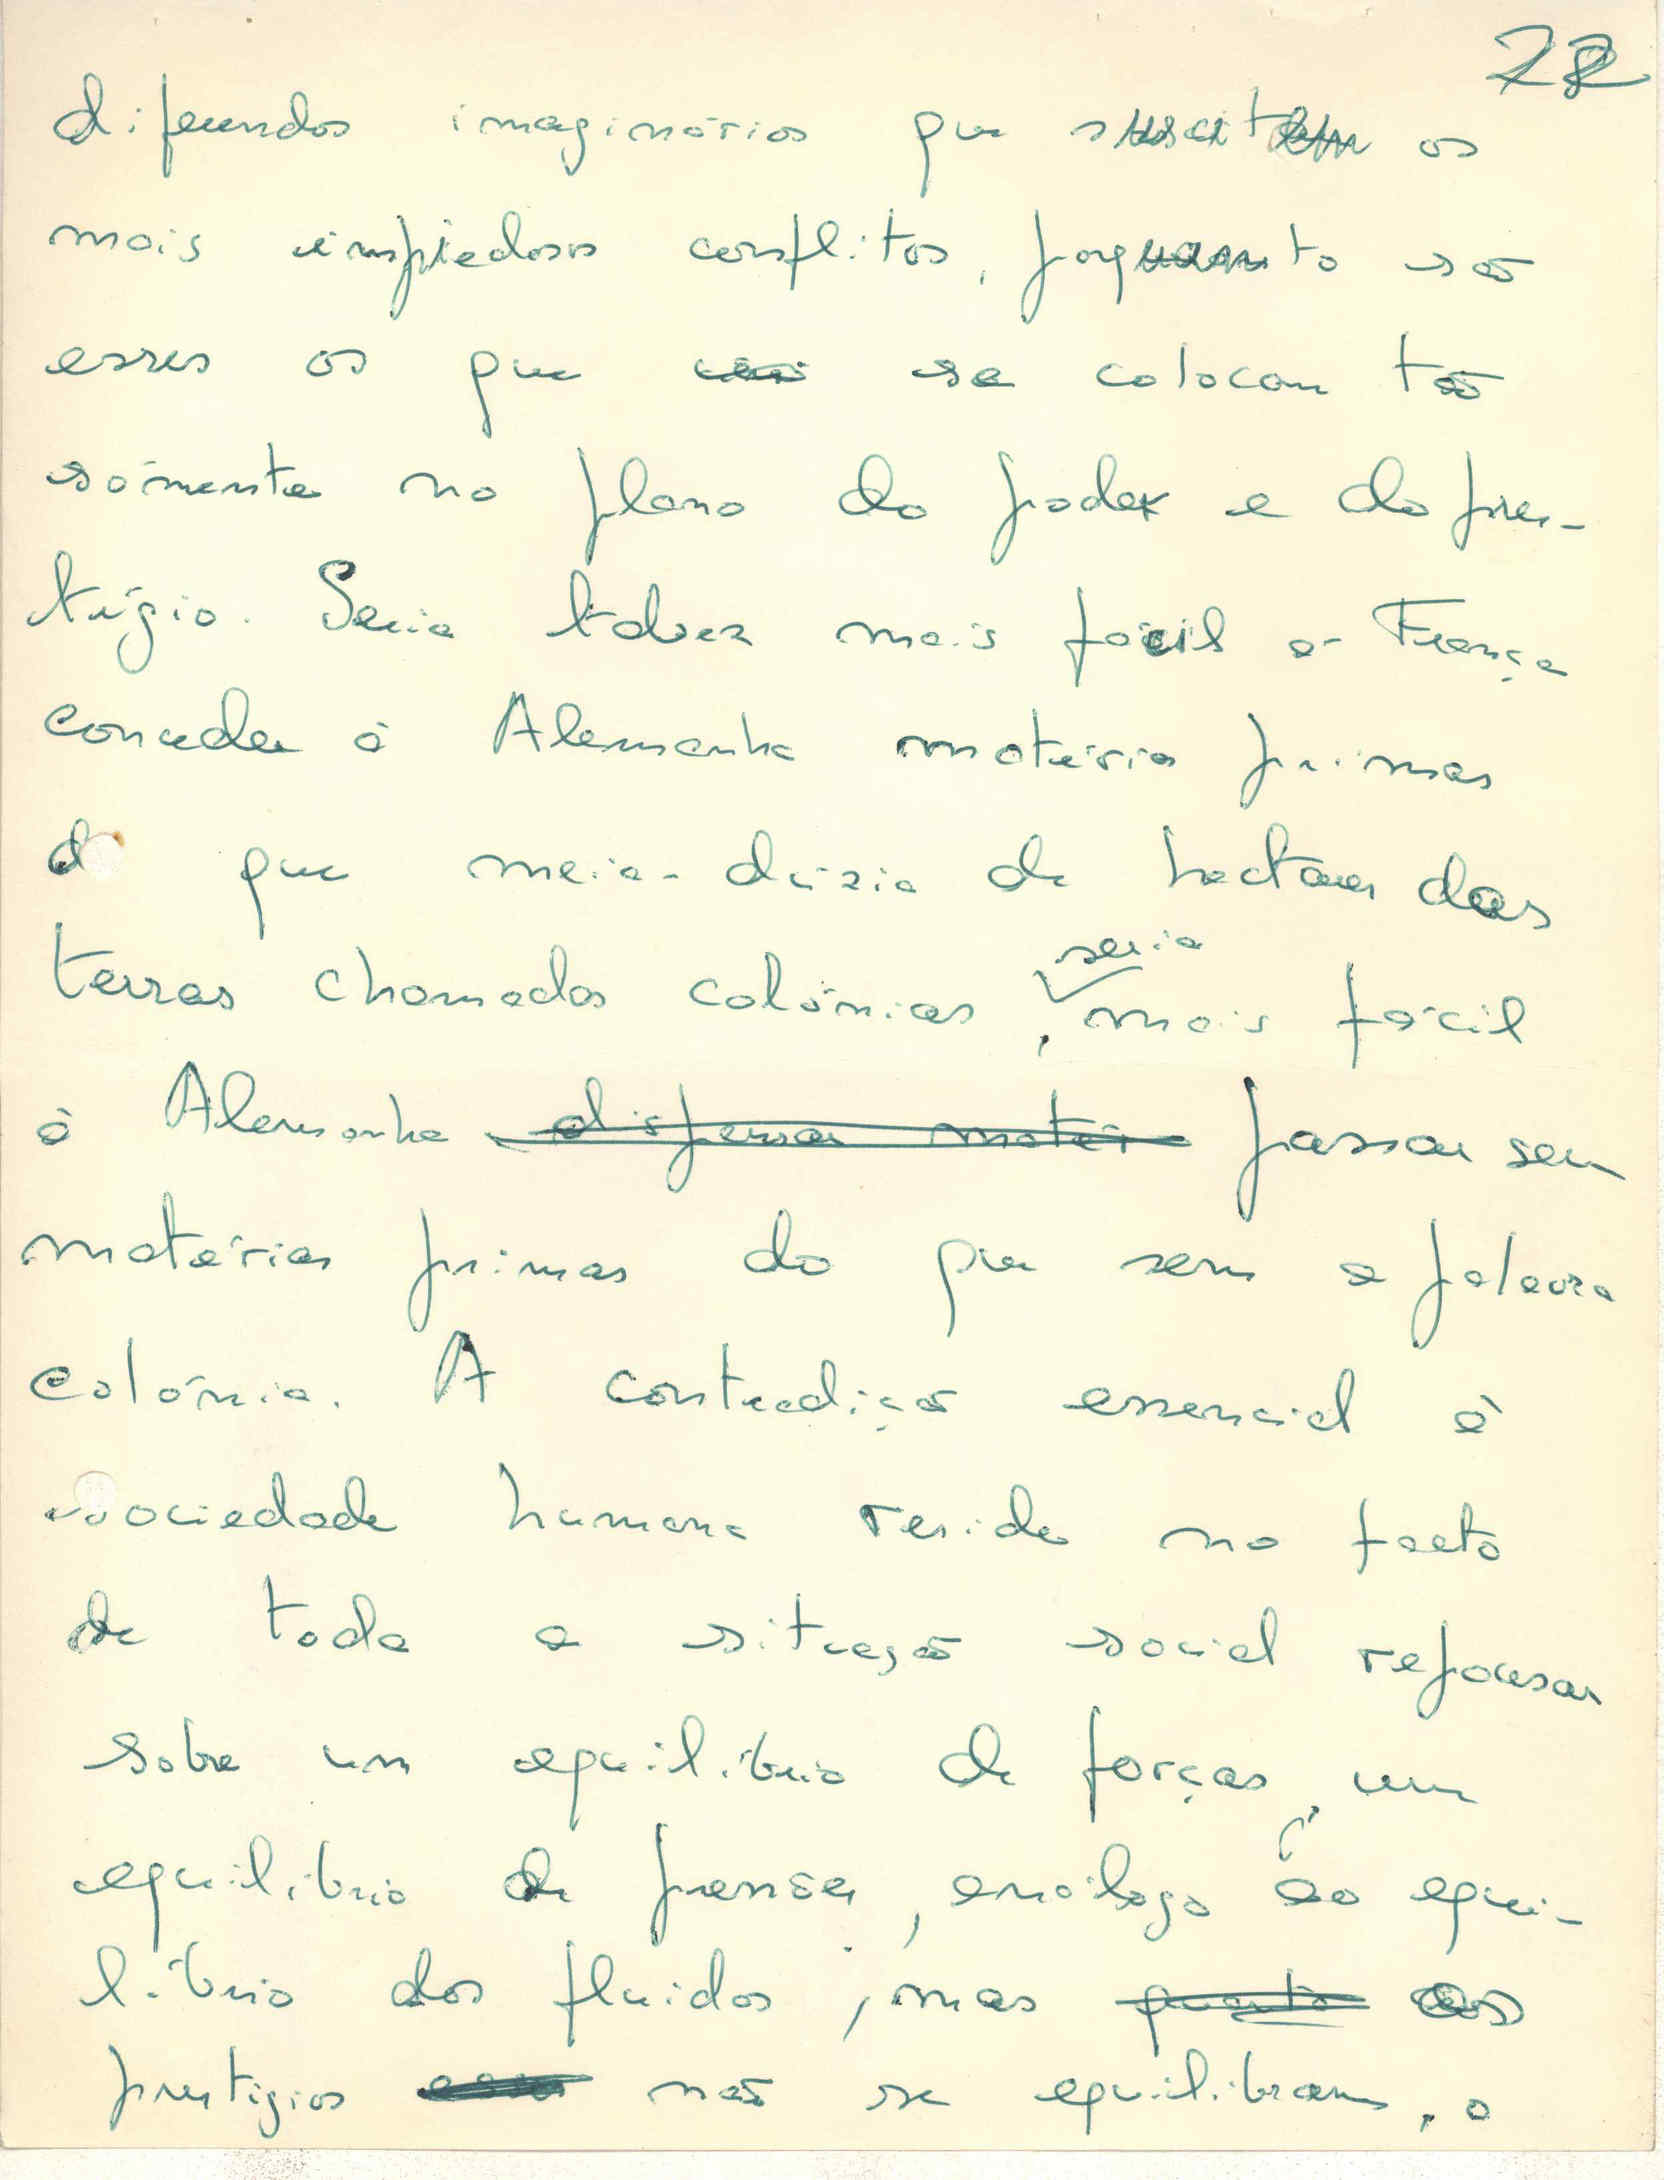 22
diferendos imaginários que suscitam os
mais impiedosos conflitos, porquanto são
esses os que se colocam tão
sòmente no plano do poder e do pres-
tígio. Seria talvez mais fácil à França
conceder à Alemanha matérias primas
do que meia-dúzia de hectares das
terras chamadas colónias, seria mais fácil
à Alemanha dispensar matéri passar sem
matérias primas do que sem a palavra
colónia. A contradição essencial à
sociedade humana reside no facto
de toda a situação social repousar
sobre um equilíbrio de forças, um
equilíbrio de pressões, análogo ao equi-
líbrio dos fluidos, mas quanto os
prestígios não se equilibram, o